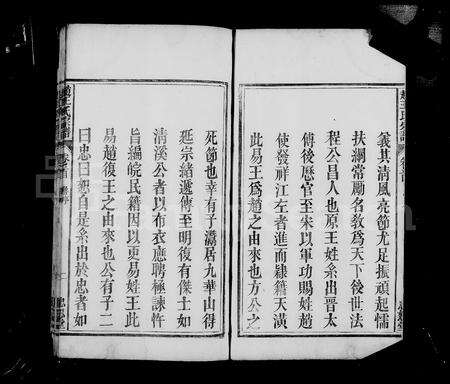 義其清風亮節尤足振頑起懦
扶綱常勵名敎爲天下後世法
程公昌人也原王姓系出晉太
傅後歷官至宋以軍功賜姓趙
使發祥江左者進而隷籍天潢
此易王爲趙之由來也方公之
死節也幸有子潛居九華山得
延宗緒遞傳至明復有傑士如
清溪公者以布衣應聘極諫忤
旨編皖民籍因以更易姓王此
易趙復王之由來也公有子二
曰忠曰恕自是系出於忠者如
趙王氏宗譜
卷首